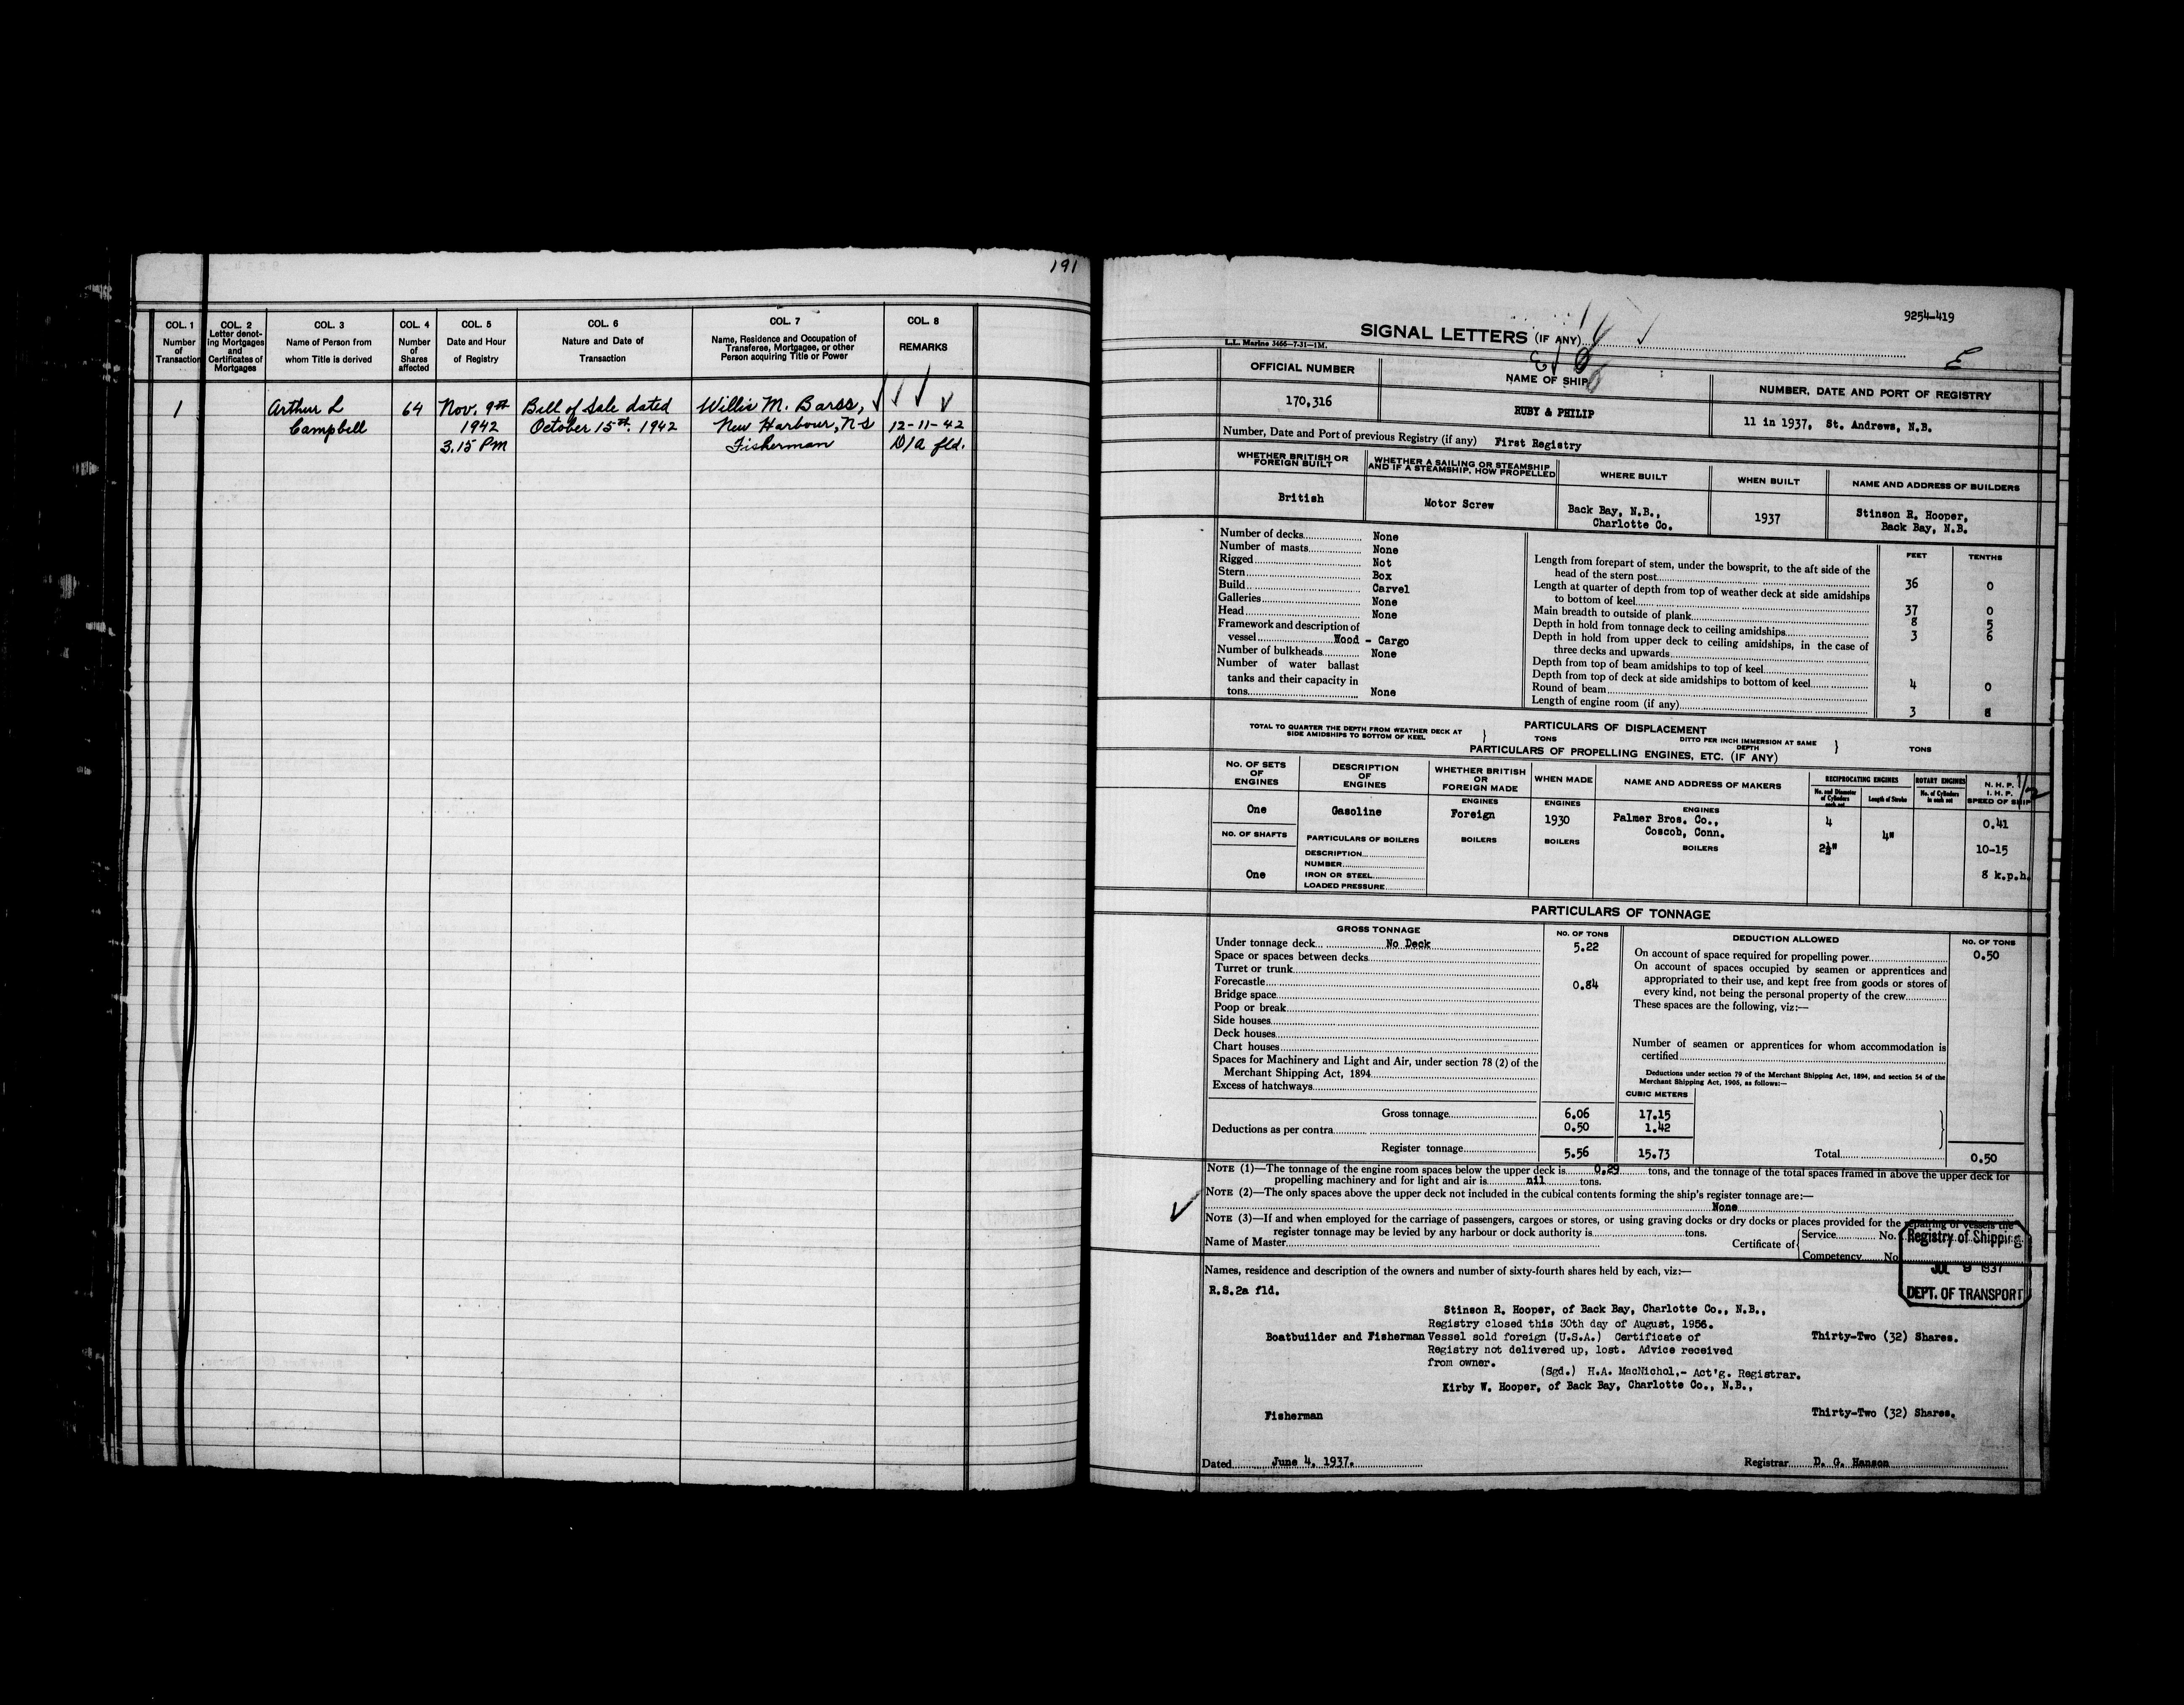 191
COL. 1
Number
of
Transaction
COL. 2
Letter denot-
ing Mortgages
and
Certificates of
Mortgages
COL. 3
Name of Person from
whom Title is derived
COL. 4
Number
of
Shares
affected
COL. 5
Date and Hour
of Registry
COL. 6
Nature and Date of
Transaction
COL. 7
Name, Residence and Occupation of
Transferee, Mortgagee, or other
Person acquiring Title or Power
COL. 8
REMARKS
1 Arthur L 64 Nov. 9th Bill of Sale dated Willis M. Barss,
Campbell 1942 October 15th. 1942 New Harbour, NS 12-11-42
3.15 PM Fisherman D/A fld.
9254-419
SIGNAL LETTERS (IF ANY)
L.L. Marine 3466-7-31-1M.
E
OFFICIAL NUMBER
170,316
NAME OF SHIP
RUBY & PHILIP
NUMBER, DATE AND PORT OF REGISTRY
11 in 1937, St. Andrews, N.B.
Number, Date and Port of previous Registry (if any) First Registry
WHETHER BRITISH OR
FOREIGN BUILT
British
WHETHER A SAILING OR STEAMSHIP
AND IF A STEAMSHIP, HOW PROPELLED
Motor Screw
WHERE BUILT
Back Bay, N.B.,
Charlotte Co.
WHEN BUILT
1937
NAME AND ADDRESS OF BUILDERS
Stinson R. Hooper,
Back Bay, N.B.
Number of decks None
Number of masts None
Rigged Not
Stern Box
Build Carvel
Galleries None
Head None
Framework and description of
vessel Wood - Cargo
Number of bulkheads None
Number of water ballast
tanks and their capacity in
tons None
FEET TENTHS
Length from forepart of stem, under the bowsprit, to the aft side of the
head of the stern post 36 0
Length at quarter of depth from top of weather deck at side amidships
to bottom of keel 37 0
Main breadth to outside of plank 8 5
Depth in hold from tonnage deck to ceiling amidships 3 6
Depth in hold from upper deck to ceiling amidships, in the case of
three decks and upwards
Depth from top of beam amidships to top of keel
Depth from top of deck at side amidships to bottom of keel 4 0
Round of beam
Length of engine room (if any) 3 8
PARTICULARS OF DISPLACEMENT
TOTAL TO QUARTER THE DEPTH FROM WEATHER DECK AT
SIDE AMIDSHIPS TO BOTTOM OF KEEL } TONS
DITTO PER INCH IMMERSION AT SAME
DEPTH } TONS
PARTICULARS OF PROPELLING ENGINES, ETC. (IF ANY)
No. OF SETS
OF
ENGINES
One
NO. OF SHAFTS
One
DESCRIPTION
OF
ENGINES
Gasoline
PARTICULARS OF BOILERS
DESCRIPTION
NUMBER
IRON OR STEEL
LOADED PRESSURE
WHETHER BRITISH
OR
FOREIGN MADE
ENGINES
Foreign
BOILERS
WHEN MADE
ENGINES
1930
BOILERS
NAME AND ADDRESS OF MAKERS
ENGINES
Palmer Bros. Co.,
Coscob, Conn.
BOILERS
RECIPROCATING ENGINES
No. and Diameter
of Cylinders
each set
4
2½"
Length of Stroke
4"
ROTARY ENGINES
No. of Cylinders
in each set
N. H. P.
I. H. P.
SPEED OF SHIP
1/2
0.41
10-15
8 k.p.h.
PARTICULARS OF TONNAGE
GROSS TONNAGE
NO. OF TONS
Under tonnage deck No Deck 5.22
Space or spaces between decks
Turret or trunk
Forecastle 0.84
Bridge space
Poop or break
Side houses
Deck houses
Chart houses
Spaces for Machinery and Light and Air, under section 78 (2) of the
Merchant Shipping Act, 1894
Excess of hatchways
CUBIC METERS
Gross tonnage 6.06 17.15
Deductions as per contra 0.50 1.42
Register tonnage 5.56 15.73
DEDUCTION ALLOWED
NO. OF TONS
On account of space required for propelling power 0.50
On account of spaces occupied by seamen or apprentices and
appropriated to their use, and kept free from goods or stores of
every kind, not being the personal property of the crew
These spaces are the following, viz:—
Number of seamen or apprentices for whom accommodation is
certified
Deductions under section 79 of the Merchant Shipping Act, 1894, and section 54 of the
Merchant Shipping Act, 1906, as follows:—
Total 0.50
NOTE (1)—The tonnage of the engine room spaces below the upper deck is 0.29 tons, and the tonnage of the total spaces framed in above the upper deck for
propelling machinery and for light and air is nil tons.
NOTE (2)—The only spaces above the upper deck not included in the cubical contents forming the ship's register tonnage are:—
None
NOTE (3)—If and when employed for the carriage of passengers, cargoes or stores, or using graving docks or dry docks or places provided for the repairing of vessels the
register tonnage may be levied by any harbour or dock authority is tons.
Name of Master
Certificate of { Service No.
Competency No
Registry of Shipping
JUL 9 1937
DEPT. OF TRANSPORT
Names, residence and description of the owners and number of sixty-fourth shares held by each, viz:—
R.S.2a fld.
Stinson R. Hooper, of Back Bay, Charlotte Co., N.B.,
Registry closed this 30th day of August, 1956.
Boatbuilder and Fisherman Vessel sold foreign (U.S.A.) Certificate of Thirty-Two (32) Shares.
Registry not delivered up, lost. Advice received
from owner.
(Sgd.) H.A. MacNichol,- Act'g. Registrar.
Kirby W. Hooper, of Back Bay, Charlotte Co., N.B.,
Fisherman Thirty-Two (32) Shares.
Dated June 4, 1937.
Registrar D. G. Hanson